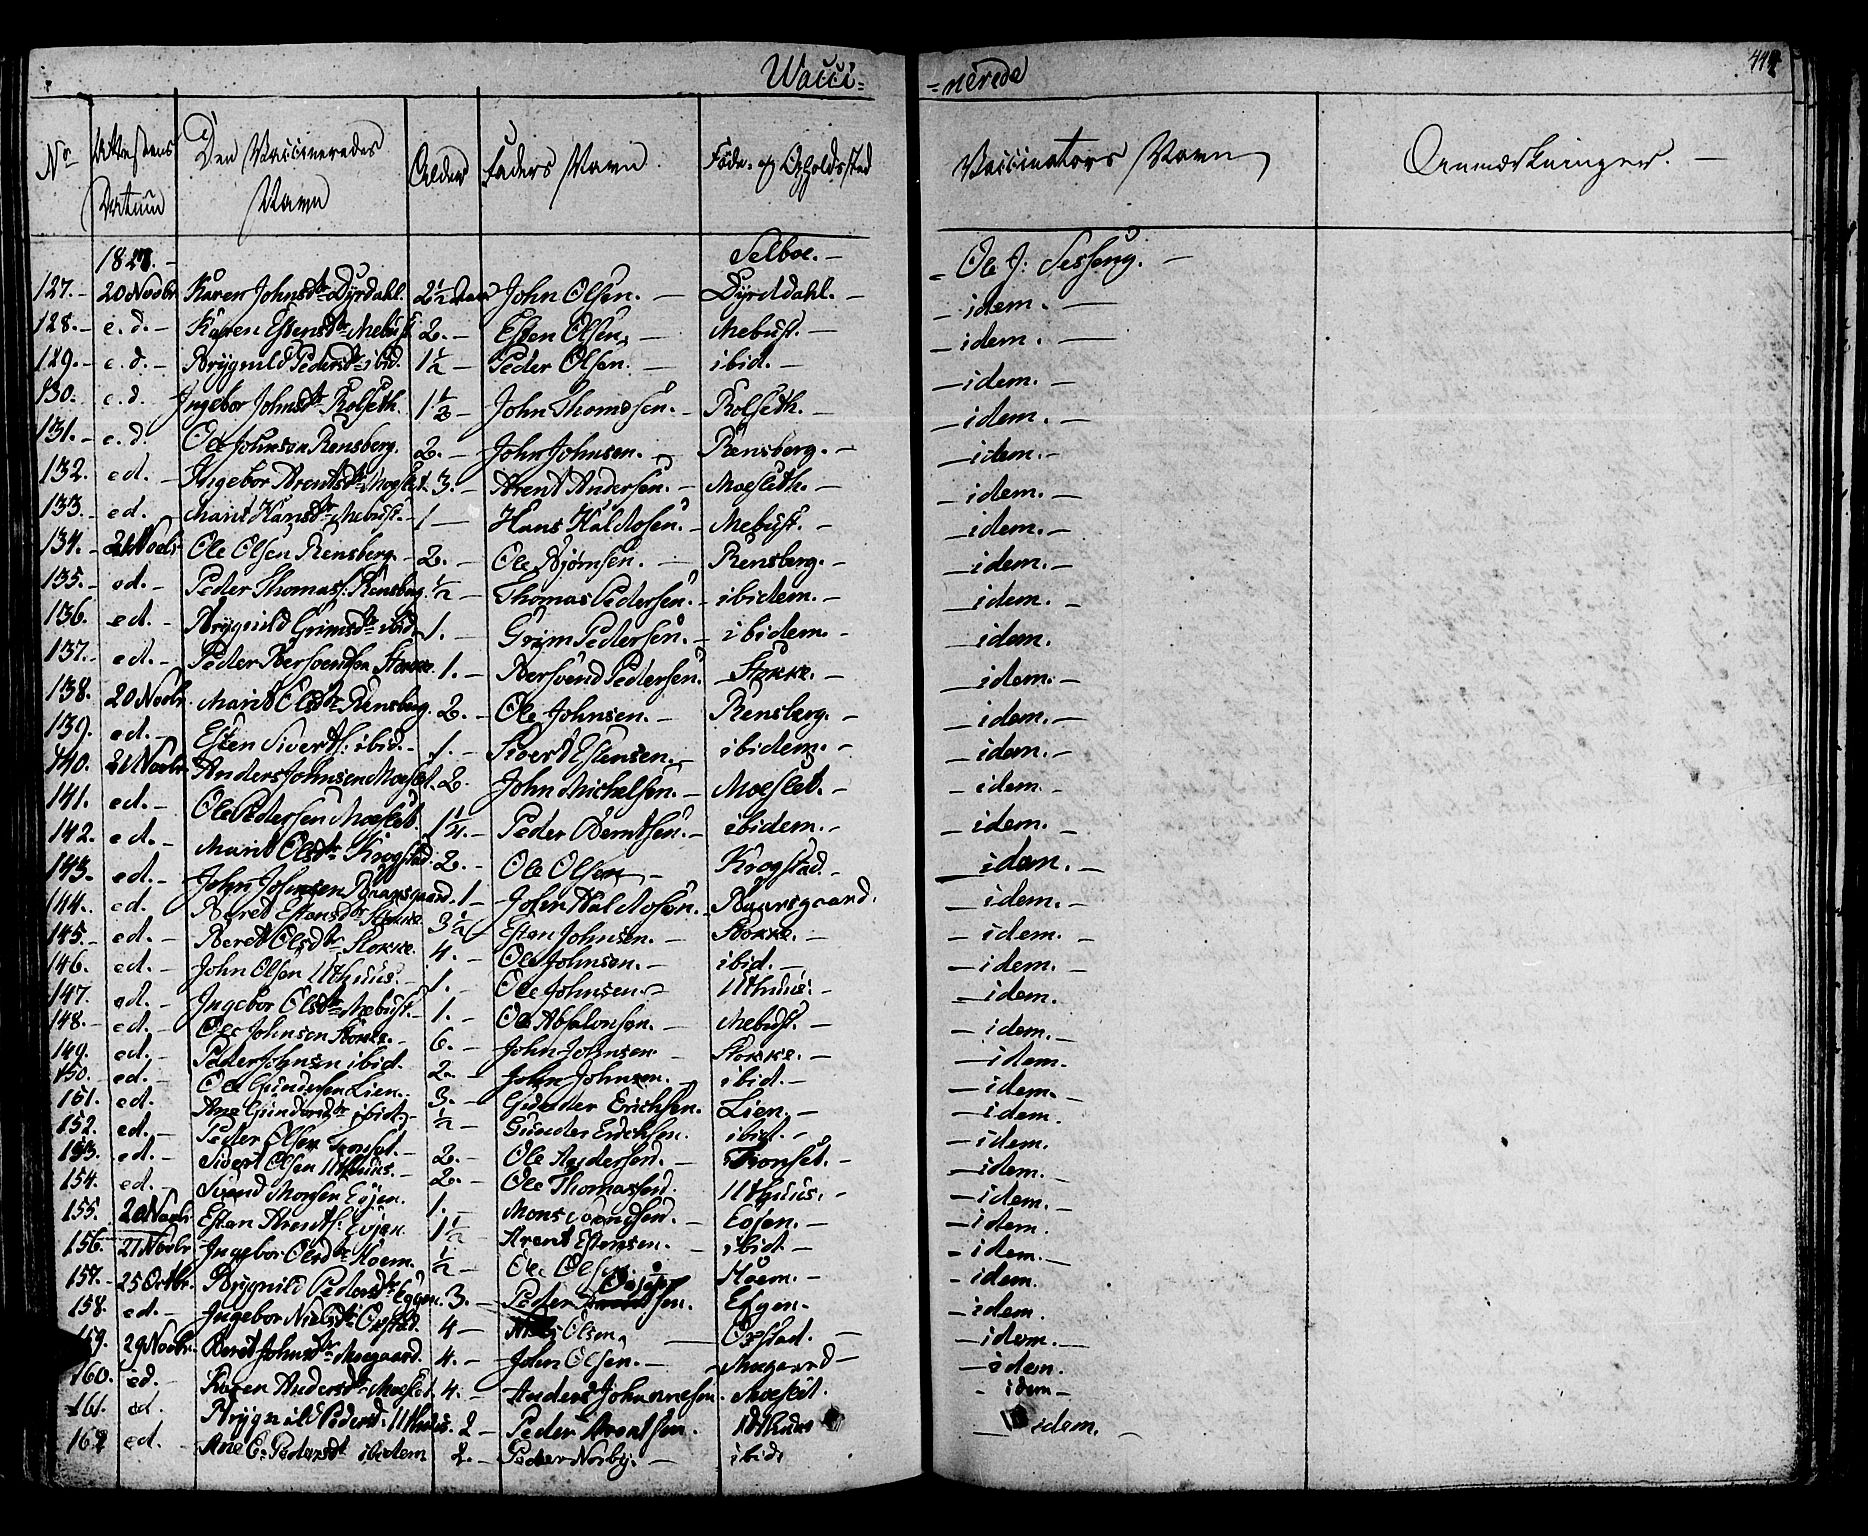 Wacci= =nerede
No Attestens Datum Den Vaccineredes Navn Alder Faders Navn Føde- og Opholdssted Vaccinators Navn Anmærkninger. —
Selboe. —
127. — 20 Novbr Karen Johnsdtr Dyrdahl. 2½ Aar John Olsen. — Dyrddahl. — Ole J:
— idem. —
128. — e. d. — Karen Estensdtr Mebust 2. — Esten Olsen. Mebust. — — idem. —
129. — e. d. — Brygnild Pedersdtr ibid. 1½ — Peder Olsen. — ibid. — — idem. —
130. e. d. Ingebor Johnsdtr Rolseth. 1½ — John Thomassen. — Rolseth. — — idem. —
131. — e. d. Ole Johnson Rensberg. 2. — John Johnsen. — Rensberg. — — idem. —
132. ed. — Ingebor Arentsdtr Moeslet. 3. — Arent Andersen. — Moesleth. — — idem. —
133. — ed. Marit Hansdtr Mebust. — 1 — Hans Haldosen. — Mebust. — — idem. —
134. — 21 Novbr Ole Olsen Rensberg. — 2. — Ole Bjørnsen. — Rensberg. — — idem. —
135. — ed. — Peder Thomass: Rensberg. ½ — Thomas Pedersen. — ibidem. — — idem. —
136. — ed. — Brygnild Grimsdtr ibid. 1. — Grim Pedersen. — ibidem. — — idem.
137. — ed. — Peder Bersvendsen Stokke. 1. — Bersvend Pedersen. — Stokke. — — idem. —
138. 20 Novbr. Marit Olsdtr Rensberg. 2. — Ole Johnsen. — Rensberg. — — idem. —
139. ed. — Esten Sivertss: ibid. — 1. — Sivert Estensen. — ibidem. — — idem. —
140. 21 Novbr. Anders Johnsen Moeslet. 2. John Michelsen. — Moeslet. — — idem. —
141. ed. — Ole Pedersen Moeslet. 1¼. — Peder Berntsen. — ibidem. — — idem. —
142. ed. — Marit Olsdtr Krogstad. 2. — Ole Olsen — Krogstad. — — idem. —
143. ed. — John Johnsen Baarsgaard. 1 — John Haldosen. — Baarsgaard. — idem. —
144. ed. Beret Estensdtr Stokke. 3½ Esten Johnsen. — Stokke. — — idem. —
145. — ed. — Beret Olsdtr Stokke. 4. — Ole Johnsen. — ibid. — — idem. —
146. ed. — John Olsen Uthuus. — 1. — Ole Johnsen. — Uthuus. — — idem.
147. ed. — Ingebor Olsdtr Mebust. — 1. — Ole Absalonsen. — Mebust. — — idem. —
148. — ed. — Ole Johnsen Stokke. — 6. — John Johnsen. Stokke. — — idem.
149. ed. — Peder Johnsen ibid. 2. — John Johnsen. — ibid. — — idem. —
150. ed. — Ole Gundersen Lien. 3. — Gunder Erichsen. Lien. — — idem.
151. ed. Ane Gundersdtr ibid. ½ — Gunder Erichsen. ibid. — — idem.
152. ed. — Peder Olsen Tronset. — 2. — Ole Andersen. — Tronset. — — idem.
153. ed. — Sivert Olsen Uthuus. — 2. — Ole Thomassen. Uthuus. — — idem.
154. ed. — Svend Monsen Evjen. 1. — Mons Svendsen. — Evjen. — — idem.
155. 20 Novbr Esten Arentss: Evjen. 1½ — Arent Estensen. — ibid. — — idem. —
156. 21 Novbr. Ingebor Olsdtr Moem. ½ — Ole Olsen. Moem. — — idem.
157. — 25 Octbr. Brygnild Pedersdtr Eggen. 3. — Peder Olsen. — idem.
158. ed. — Ingebor Nielsdtr 4 — Niels Olsen. — — — idem. —
159. 29 Novbr. Beret Johnsdtr Moegaard. 4. — John Olsen. — Mogaard — — idem.
160. ed. — Karen Andersdtr Moeslet. 4. — Anders Johannesen. Moeslet. — idem —
161. ed. Brygnild Pedersd: Uthuus. 2 — Peder Arentsen. Uthuus idem. —
162 ed. — Ane E: Pedersdtr ibidem 2. — Peder Norby. — ibid.